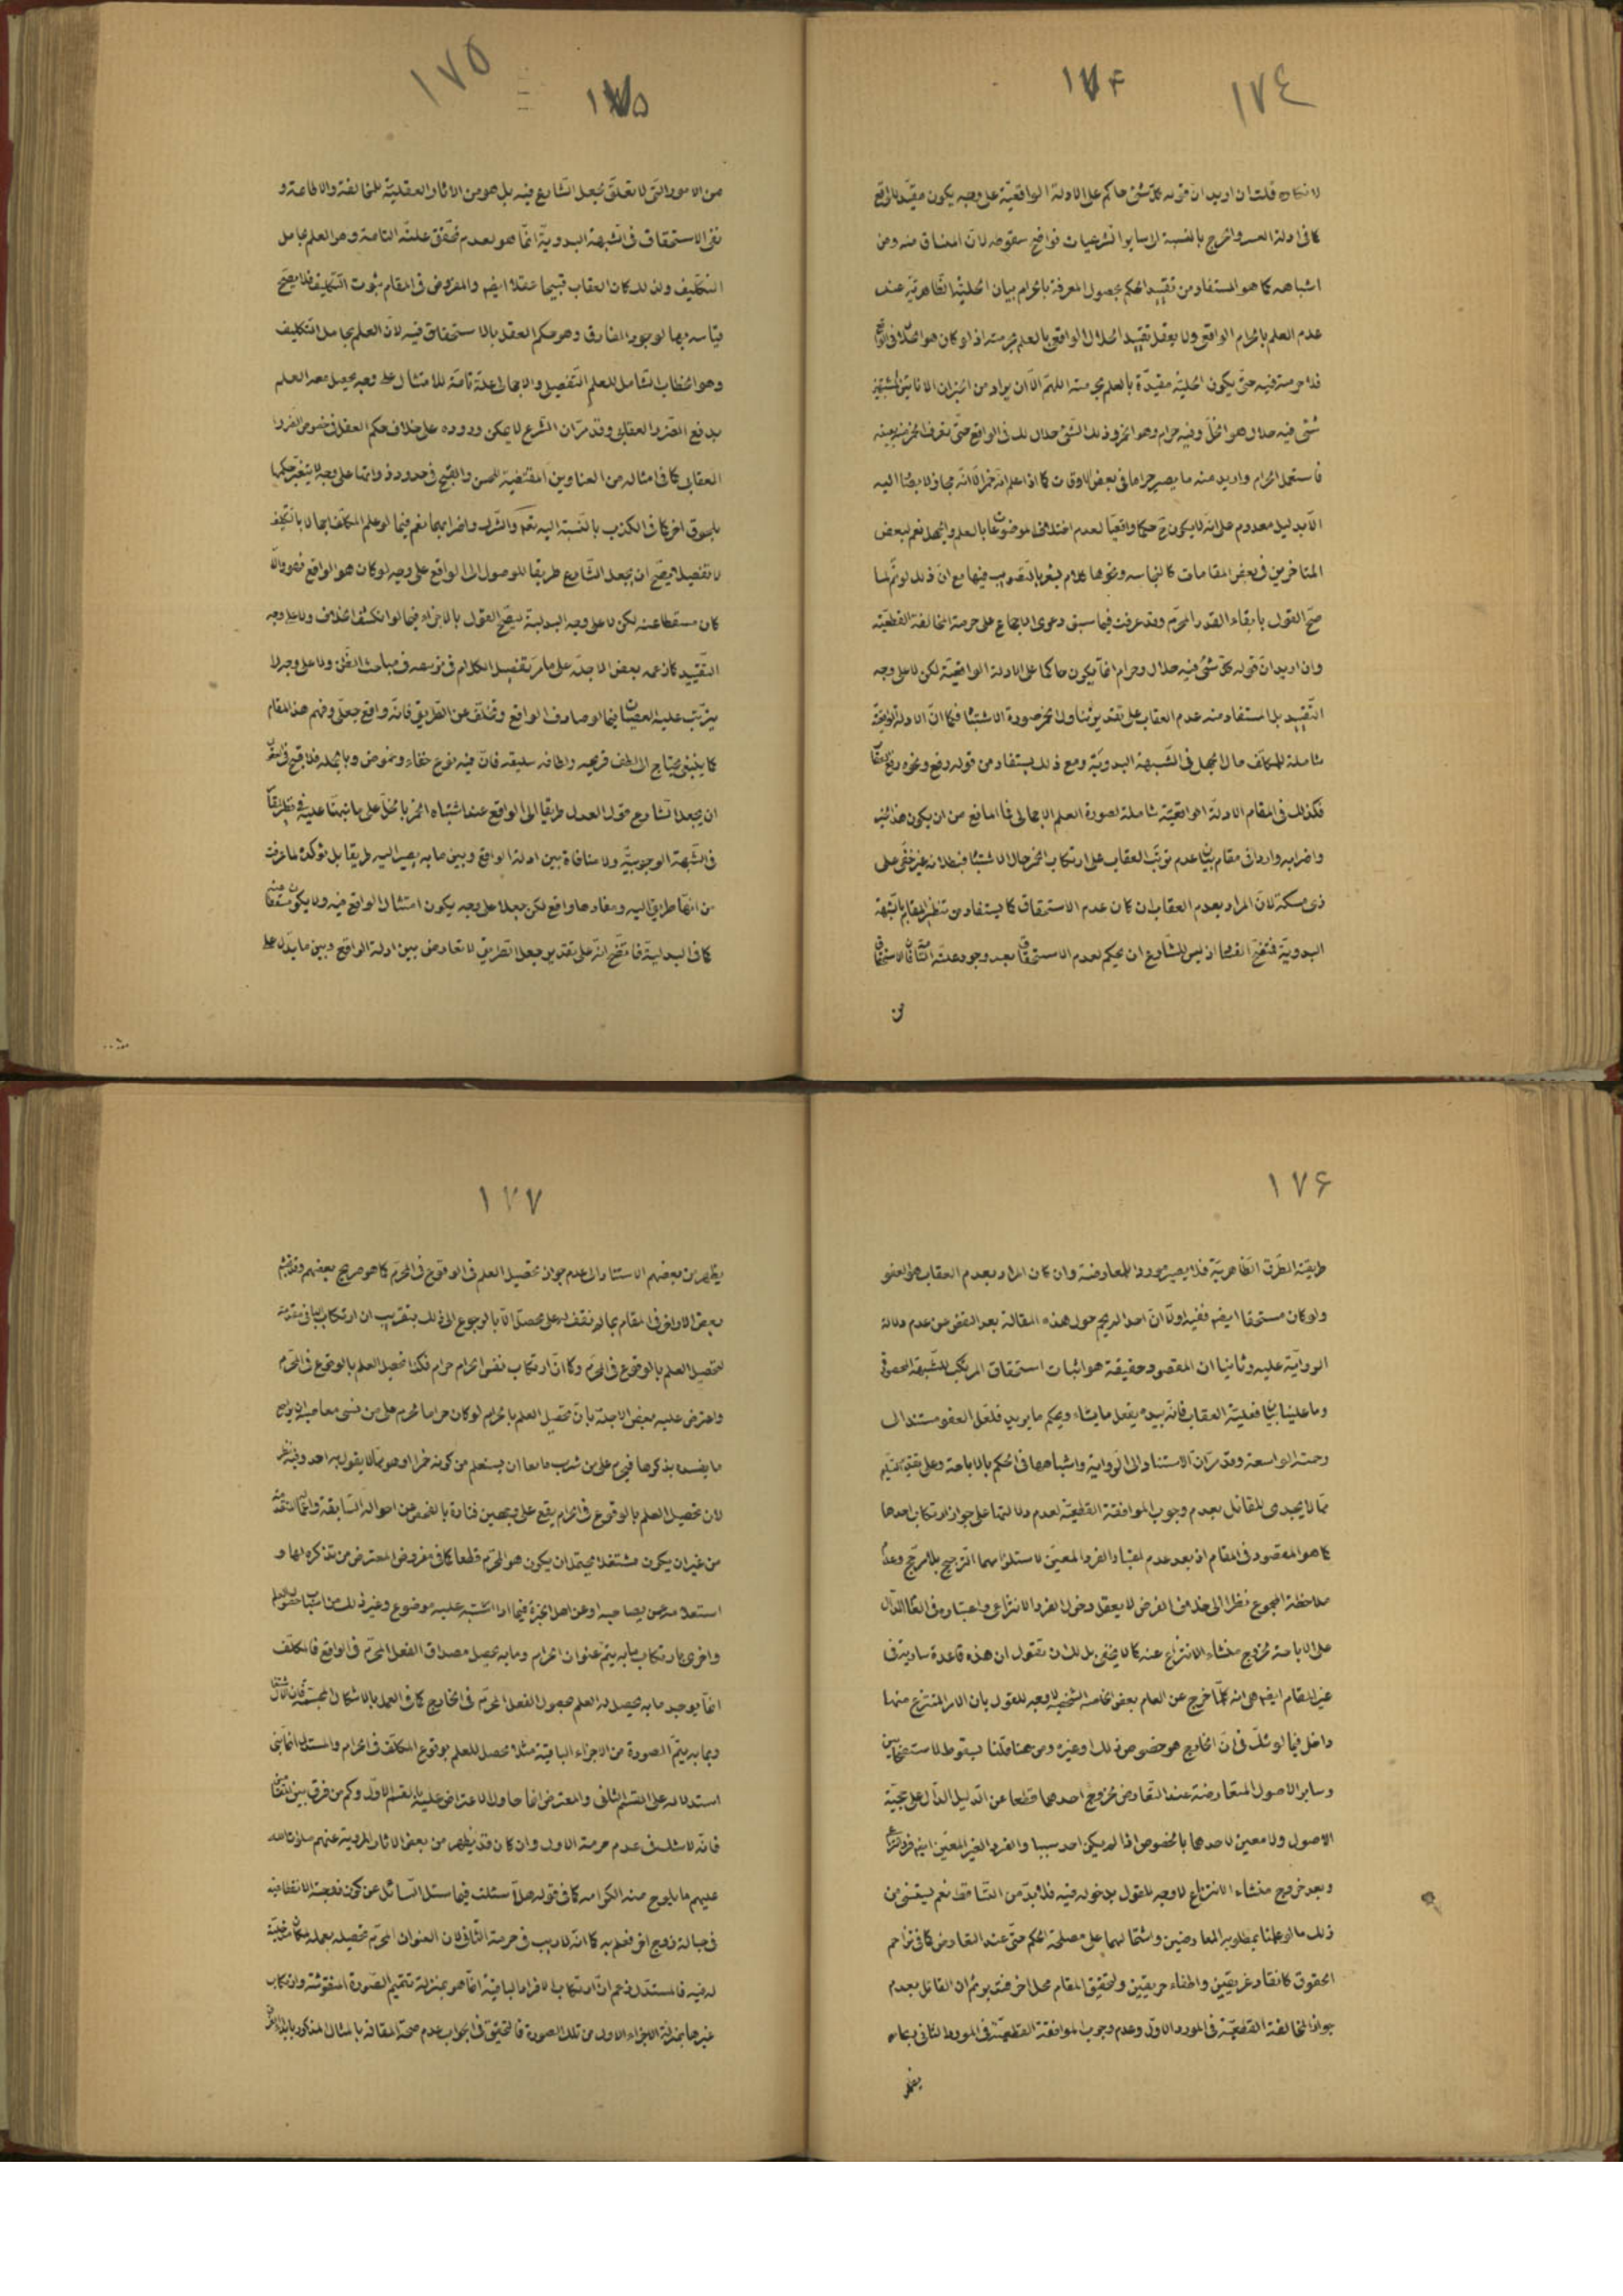 ١٧٤
١٧۴
لا نكاه قلت ان اريد ان قوله كل شئ حاكم على الادلة الواقعيّة على وجه يكون مقيّدا للواقع
كما فى ادلة العسر والحرج بالنسبة الى ساير الشرعيات فواضح سقوطه لان المنساق منه ومن
اشباهه كما هو المستفاد من تقييد الحكم بحصول المعرفة بالحرام بيان الحلية الظاهريّة عند
عدم العلم بالحرام الواقعى ولا يعقل تقييد الحلال الواقعى بالعلم بحرمته اذ لو كان هو الحلال فى الواقع
فلا حرمة فيه حتى يكون الحلية مقيّدة بالعلم بحرمته اللهم الا ان يراد من الخبر ان الانائين المشتبهين
شئ فيه حلال هو الخل وفيه حرام وهو الخمر وذلك الشئ حلال لك فى الواقع حتى تعرف الخمر منه بعينه
فاستعمل الحرام واريد منه ما يصير حراما فى بعض الاوقات كما اذا علم انه خمر الا انه مجاز لا يصار اليه
الا بدليل معدوم على انه لا يكون ح حكما واقعيا لعدم اختلاف الموضوعات بالعلم والجهل نعم لبعض
المتاخرين فى بعض المقامات كالنجاسه ونحوها كلام يشعر بالتصويب فيها مع ان ذلك لو تم لما
صح القول بابقاء القدر المحرّم وقد عرفت فيما سبق دعوى الاجماع على حرمة المخالفة القطعيّه
وان اريد ان قوله كل شئ فيه حلال وحرام انما يكون حاكما على الادلة الواقعيّة لكن لا على وجه
التقييد بل المستفاد منه عدم العقاب على تقدير تناول الخمر صورة الاشتباه فكما ان الادلة الواقعيّة
شاملة للمكلف حال الجهل فى الشبهة البدويّة ومع ذلك يستفاد من قوله رفع ونحوه رفع العقاب
فكذلك فى المقام الادلة الواقعيّة شاملة لصورة العلم الاجمالى فما المانع من ان يكون هذا الخبر
واضرابه واردا فى مقام بيان عدم ترتب العقاب على ارتكاب الخمر حال الاشتباه فبطلانه غير خفى على
ذى مسكة لان المراد بعدم العقاب ان كان عدم الاستحقاق كما يستفاد من تنظير المقام بالشبهة
البدويّة فتتضح الفساد اذ ليس للشارع ان يحكم بعدم الاستحقاق بعد وجود علته التامة فان الاستحقاق
من
١٧٥
١٧۵
من الامور التى لا تعلق لجعل الشارع فيه بل هو من الاثار العقليّة للمخالفة والاطاعة و
نفى الاستحقاق فى الشبهة البدويّة انما هو لعدم تحقق علته التامة وهو العلم بحامل
التكليف ولذلك كان العقاب قبيحا عقلا ايضا والمفروض فى المقام ثبوت التكليف فلا يصح
قياسه بها لوجود الفارق وهو حكم العقل بالاستحقاق فيه لان العلم بحامل التكليف
وهو الخطاب الشامل للعلم التفصيلى والاجمالى علة تامة للامتثال على وجه يحصل معه العلم
بدفع الضرر العقابى وقد مر ان الشرع لا يمكن وروده على خلاف حكم العقل فى خصوص الضرر
العقابى كما فى امثاله من العناوين المقتضية للحسن والقبح فى حدود ذواتها على وجه لا يتغير حكمها
بلحوق اخر كما فى الكذب بالنسبة اليه تعالى والشرك واضرابهما نعم فيما لو علم المكلف اجمالا بالتكليف
لا تفصيلا يصح ان يجعل الشارع طريقا للوصول الى الواقع على وجه لو كان هو الواقع فهو والا
كان مسقطا عنه لكن لا على وجه البدلية ليصح القول بالاجزاء فيما لو انكشف الخلاف ولا على وجه
التقييد كما زعمه بعض الاجلة على ما مر تفصيل الكلام فى تزييفه فى مباحث الظن ولا على وجه لا
يترتب عليه العصيان فيما لو صادف الواقع وتخلف عن الطريق فانه واقع جعلى وفهم هذا المقام
كما ينبغى يحتاج الى لطف قريحه ولطافه سليقه فان فيه نوع خفاء وغموض وبالجملة فلا قبح فى العقل
ان يجعل الشارع قول العدل طريقا الى الواقع عند اشتباه الخمر بالخل على ما نبهنا عليه فى نظيره
فى الشبهة الوجوبيّة ولا منافاة بين ادلة الواقع وبين ما به يصير اليه طريقا بل يؤكده لما عرفت
من انها طريق اليه ومفادها واقع لكن جعلا على وجه يكون امتثال الواقع فيه ولا يكون مسقطا عنه
كما فى البدلية فاتضح انه على تقدير جعل الطريق لا تعارض بين ادلة الواقع وبين ما يدل على
١٧۶
طريقية الطرق الظاهريّة فلا يصير موردا للمعارضة وان كان المراد بعدم العقاب هو العفو
ولو كان مستحقا ايضا ففيه اولا ان احدا لم يحم حول هذه المقالة بعد الغض عن عدم دلالة
الرواية عليه وثانيا ان المقصود حقيقة هو اثبات استحقاق المرتكب للشبهة المحصورة
وما علينا بيان فعلية العقاب فانه بيده يفعل ما يشاء ويحكم ما يريد فلعل العفو مستند الى
رحمته الواسعة وقد مر ان الاستناد الى الرواية واشباهها فى الحكم بالاباحة وعلى تقدير تسليم
مما لا يجدى للقائل بعدم وجوب الموافقة القطعيّة لعدم دلالتها على جواز ارتكاب احدها
كما هو المقصود فى المقام اذ بعد عدم اعتبار الفرد المعين لاستلزامهما الترجيح بلا مرجح وعدم
ملاحظة المجموع نظرا الى خلاف الفرض لا يعقل دخول الفرد الانتزاعى واعتباره فى العام الدال
على الاباحة لخروج منشاء الانتزاع عنه كما لا يخفى بل لك ان تقول ان هذه قاعدة سارية فى
غير المقام ايضا هى انه كلما خرج عن العام بعض الخاصه الشخصيه لا وجه للقول بان الامر المنتزع منها
داخل فيما لو شك فى ان الخارج هو خصوص ذلك او غيره ومن هنا قلنا بسقوط الاستصحابين
وساير الاصول المتعارضة عند التعارض لخروج احدهما قطعا عن الدليل الدال على حجية
الاصول ولا معين لاحدها بالخصوص اذا لم يكن احد سببيا والفرد الغير المعين ايضا فرد انتزاعى
وبعد خروج منشاء الانتزاع لا وجه للقول بدخوله فيه فلا بد من التساقط نعم يستثنى من
ذلك ما لو علمنا بمطلوبية المعارضين واشتمالهما على مصلحة الحكم حتى عند التعارض كما فى تزاحم
الحقوق كانقاذ غريقين واطفاء حريقين ولتحقيق المقام محل اخر فتدبر ثم ان القائل بعدم
جواز المخالفة القطعيّة فى المورد الاول وعدم وجوب الموافقة القطعيّة فى المورد الثانى ربما
يظهر
١٧٧
يظهر من بعضهم الاستناد الى عدم جواز تحصيل العلم فى الوقوع فى المحرّم كما هو صريح بعضهم وقد تجشم
بعض الاواخر فى المقام بما لم نقف له على محصل الا بالرجوع الى ذلك بتقريب ان ارتكاب الباقى مقدمة
لتحصيل العلم بالوقوع فى المحرّم وكما ان ارتكاب نفس الحرام حرام فكذا تحصيل العلم بالوقوع فى المحرّم
واعترض عليه بعض الاجلة بان تحصيل العلم بالحرام لو كان حراما لحرم على من نسى معاصيه ان يراجع
ما يفسده بذكرها فيحرم على من شرب مايعا ان يستعلم من كونه خمرا او هو مما لا يقول به احد وفيه نظر
لان تحصيل العلم بالوقوع فى الحرام يقع على وجهين فتارة بالفحص عن احواله السابقة واعماله المتقدمة
من غير ان يكون مشتغلا بمحتمل ان يكون هو المحرّم قطعا كما فى مفروض المعترض من تذكره لها و
استعلامه عمن يصاحبه او عن اهل الخبرة فيما اذا اشتبه عليه موضوع وغير ذلك من اسباب حصول العلم
واخرى بارتكاب ما به يتم عنوان الحرام وما به يحصل مصداق الفعل المحرّم فى الواقع فالمكلف
انما يوجد ما به يحصل له العلم بحصول الفعل المحرّم فى الخارج كما فى العمل بالاشكال المجسمة فان الاشتغال
وبما به يتم الصورة من الاجزاء الباقية مثلا محصل للعلم بوقوع المكلف فى الحرام والمستدل انما بنى
استدلاله على القسم الثانى والمعترض انما حاول الاعتراض عليه بالقسم الاول وكم من فرق بين المقامين
فانه لا شك فى عدم حرمة الاول وان كان قد يظهر من بعض الاثار المروية عنهم صلوات الله
عليهم ما يلوح منه الكراهه كما فى قوله هلا سئلت فيما سئل السائل عن كون زوجته الانقطاعيه
فى حبالة زوج اخر فعلم به كما انه لا ريب فى حرمة الثانى لان العنوان المحرّم تحصيله بعمله مكان مدخلية
له فيه فالمستدل زعم ان ارتكاب الافراد الباقية انما هو بمنزلة تتميم الصورة المنقوشة وارتكاب
غيرها بمنزلة الاجزاء الاول من تلك الصورة فالتحقيق فى الجواب عدم صحة المقايسة بالمثال المذكور